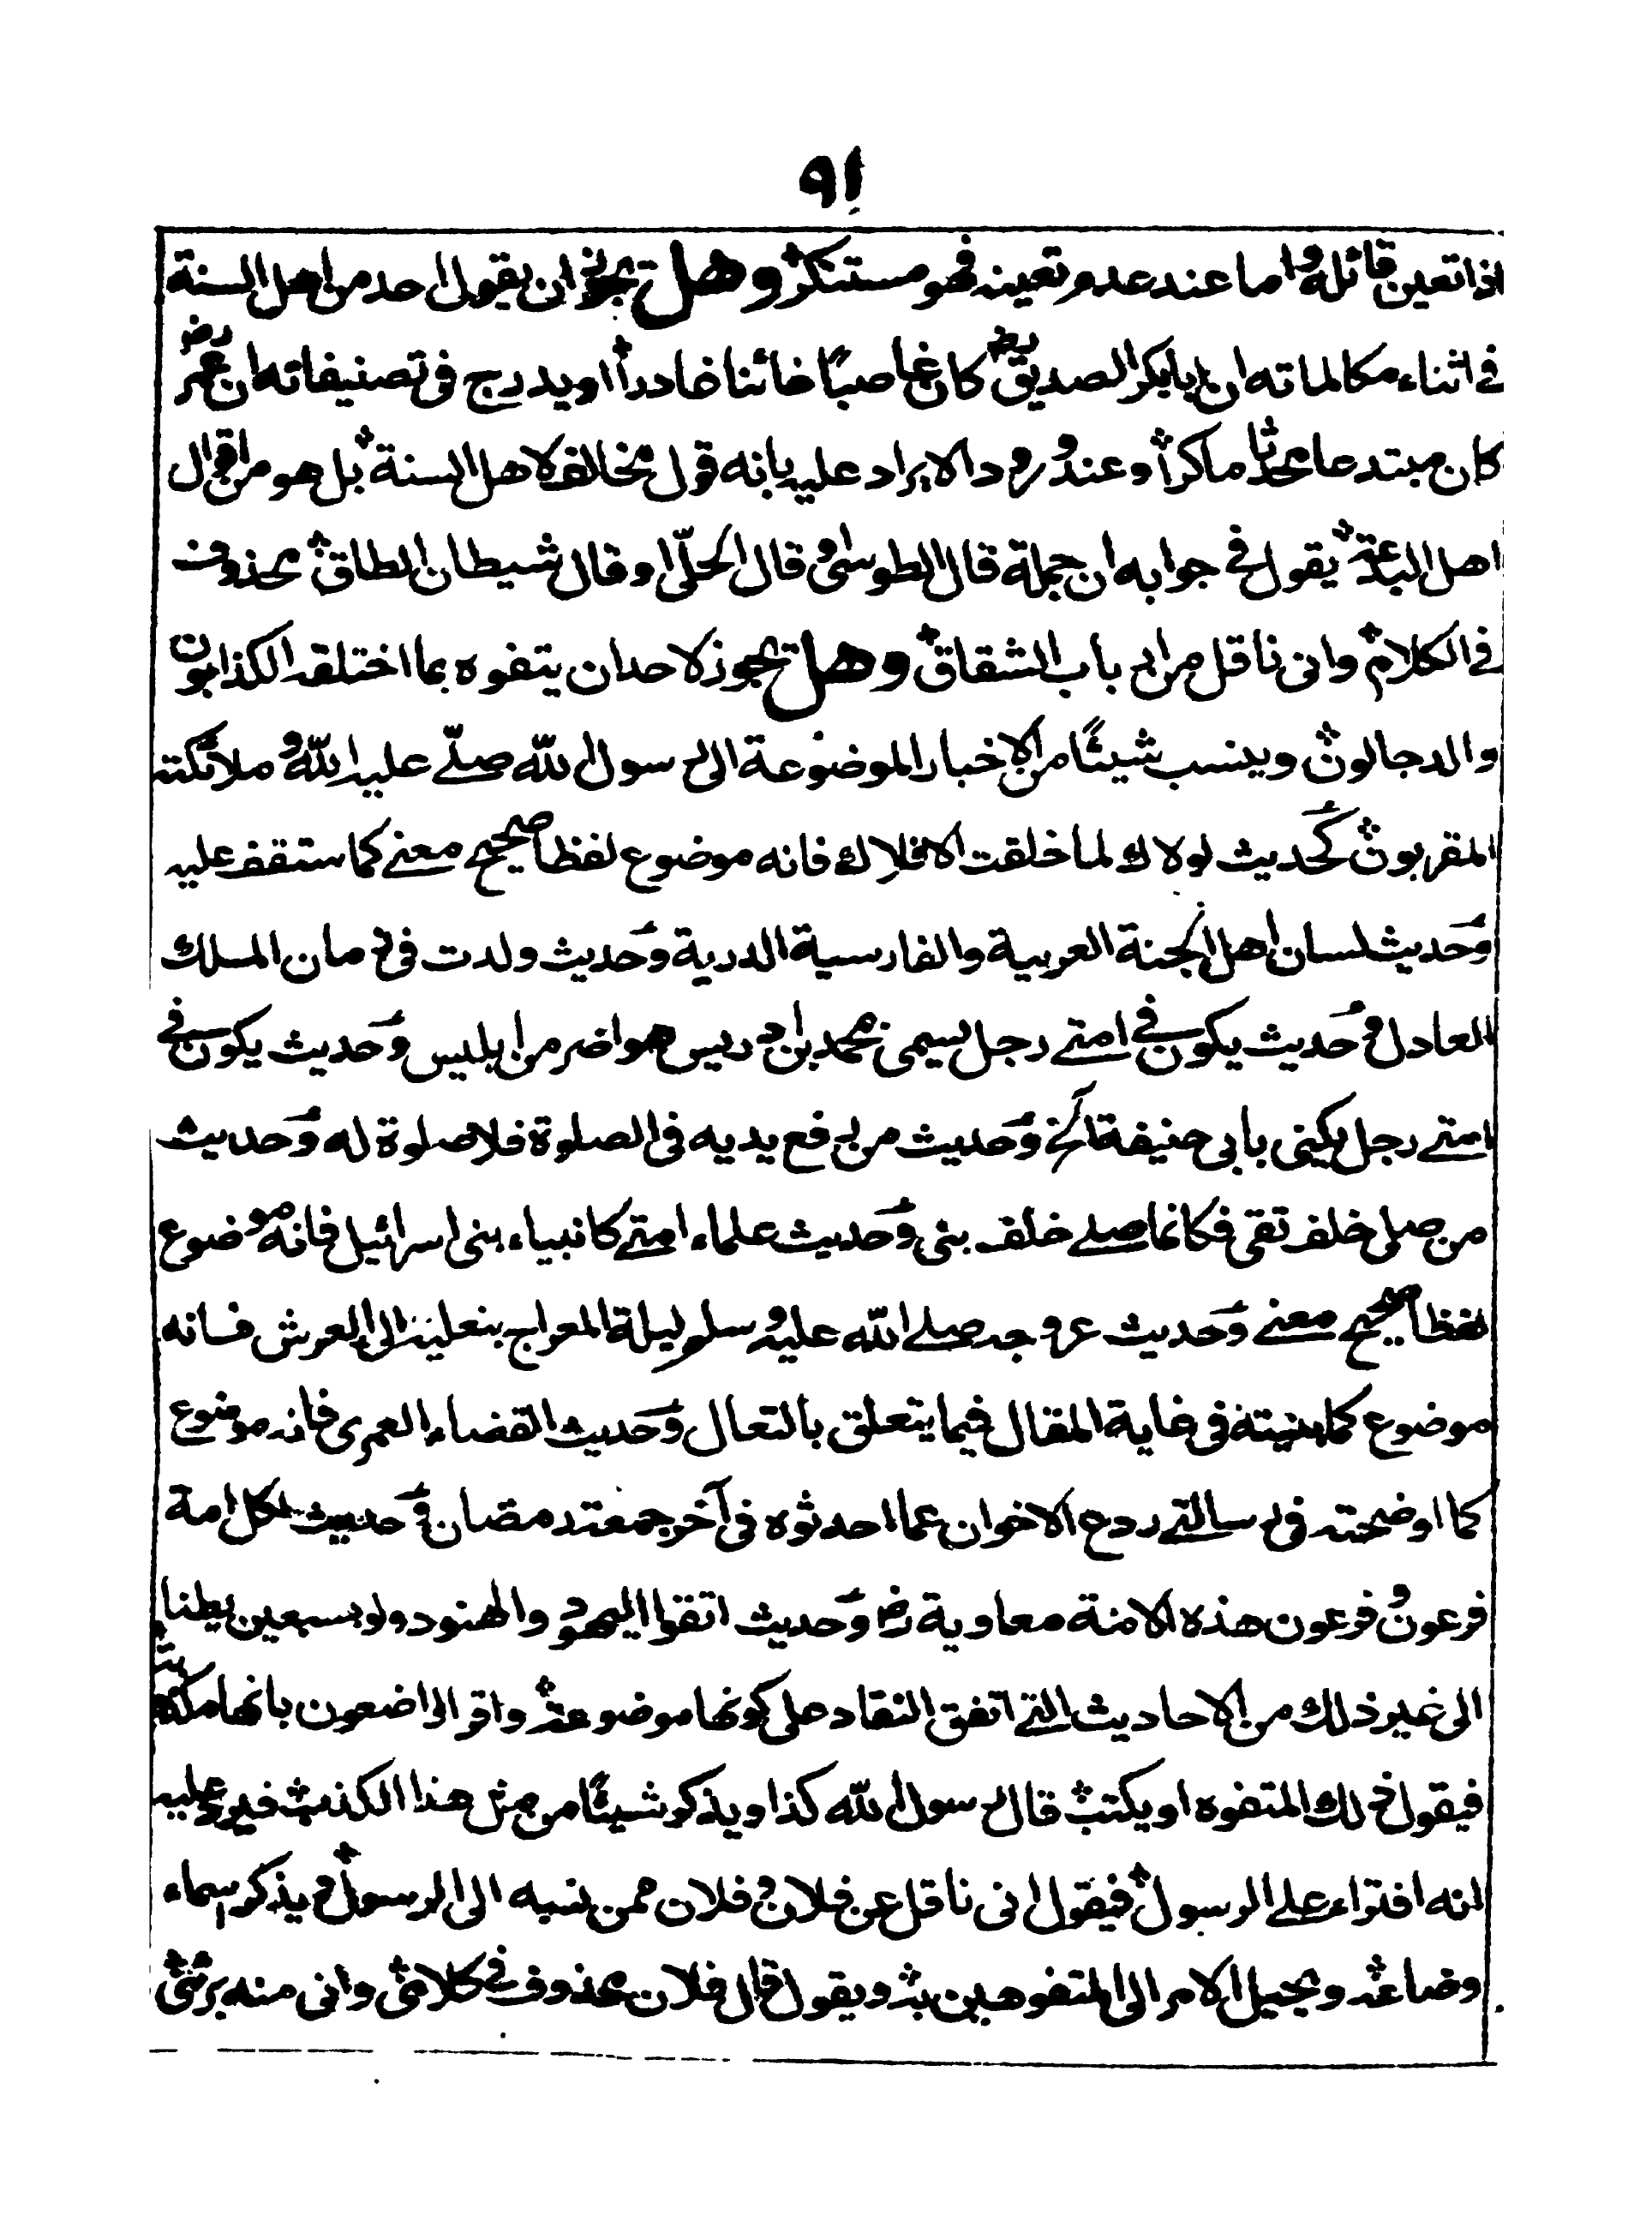 ٩١
اذا تعين قائله واما عند عدم تعينه فهو مستنكر وهل يجوز ان يقول احد من اهل السنة
فى اثناء مكالماته ان ابا بكر الصديق رض كان غاصبًا خائنا غادراً او يدرج فى تصنيفاته ان عمر رض
كان مبتدعا محدثا ماكراً وعند ورود الايراد عليه بانه قول مخالف لاهل السنة بل هو من اقوال
اهل البدعة يقول فى جوابه ان جملة قال الطوسى او قال الحلّى او قال شيطان الطاق محذوف
فى الكلام وانى ناقل من ارباب الشقاق وهل يجوز لاحد ان يتفوه بما اختلقه الكذابون
والدجالون وينسب شيئًا من الاخبار الموضوعة الى رسول الله صلّے عليه الله وملائكته
المقربون كحديث لولاك لما خلقت الافلاك فانه موضوع لفظا صحيح معنے كما ستقف عليه
وحديث لسان اهل الجنة العربية والفارسية الدرية وحديث ولدت فى زمان الملك
العادل وحديث يكون فى امتے رجل يسمى محمد بن ادريس هو اضر من ابليس وحديث يكون فى
امتے رجل يكنى بابى حنيفة الخ وحديث من رفع يديه فى الصلوة فلا صلوة له وحديث
من صلى خلف تقى فكانما صلے خلف نبى وحديث علماء امتے كانبياء بنى اسرائيل فانه موضوع
لفظا صحيح معنے وحديث عروجه صلے الله عليه وسلم ليلة المعراج بنعليه الى العرش فانه
موضوع كما بينته فى غاية المقال فيما يتعلق بالنعال وحديث القضاء العمرى فانه موضوع
كما اوضحته فى رسالتے ردع الاخوان عما احدثوه فى آخر جمعة رمضان وحديث لكل امة
فرعون وفرعون هذه الامة معاوية رض وحديث اتقوا اليهود والهنود ولو بسبعين بطنا
الى غير ذلك من الاحاديث التے اتفق النقاد على كونها موضوعة واقر الواضعون بانها مكذوبة
فيقول ذلك المتفوه او يكتب قال رسول الله كذا ويذكر شيئًا من مثل هذا الكذب فيرد عليه
انه افتراء علے الرسول فيقول انى ناقل عن فلان وفلان ممن نسبه الى الرسول ويذكر اسماء
وضاعه ويحيل الامر الى المتفوهين به ويقول قال فلان محذوف فى كلامى وانى منه برئ